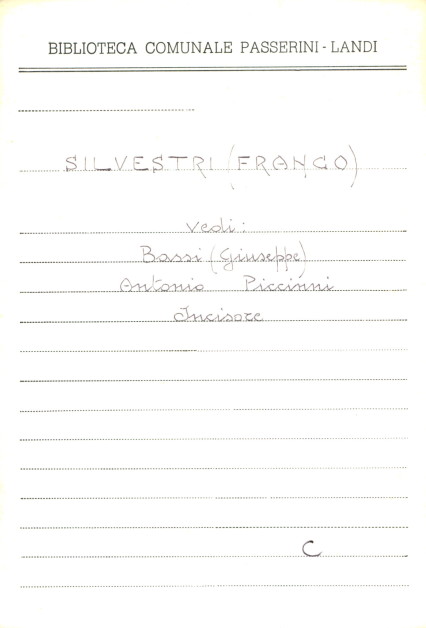 BIBLIOTECA COMUNALE PASSERINI - LANDI
SILVESTRI (FRANCO)
vedi:
Bassi (Giuseppe)
Antonio Piccinni
Incisore
C